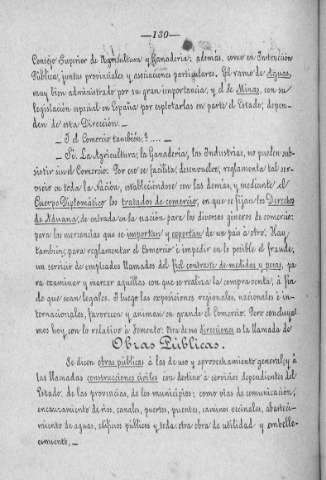 —130—
Consejo Superior de Agricultura y Ganadería; además, como en Instrucción
Pública, juntas provinciales y asociaciones particulares. El ramo de Aguas,
muy bien administrado por su gran importancia, y el de Minas, con su
legislación especial en España por explotarlas en parte el Estado, depen-
den de esta Dirección. —
— ¿Y el Comercio también?.... —
— Sí. La Agricultura, la Ganadería, las Industrias, no pueden sub-
sistir sin el Comercio. Por eso se facilita, desenvuelve, reglamenta tal ser-
vicio en toda la Nación, estableciéndose con las demás, y mediante el
Cuerpo Diplomático los tratados de comercio, en que se fijan los Derechos
de Aduana, de entrada en la nación para los diversos géneros de comercio:
para las mercancías que se importan y exportan de un país á otro. Hay
también, para reglamentar el Comercio é impedir en lo posible el fraude,
un servicio de empleados llamados del fiel contraste de medidas y pesas, pa-
ra examinar y marcar aquellas con que se realiza la compra-venta, á fin
de que sean legales. Y luego las exposiciones regionales, nacionales é in-
ternacionales, favorecen y animan en grande el Comercio. Pero concluya-
mos hoy con lo relativo á Fomento. Una de sus direcciones es la llamada de
Obras Públicas.
Se dicen obras públicas á las de uso y aprovechamiento general; y á
las llamadas construcciones civiles con destino á servicios dependientes del
Estado, de las provincias, de los municipios; como vías de comunicación,
encauzamiento de ríos, canales, puertos, puentes, caminos vecinales, abasteci-
miento de aguas, edificios públicos y toda otra obra de utilidad y embelle-
cimiento. —